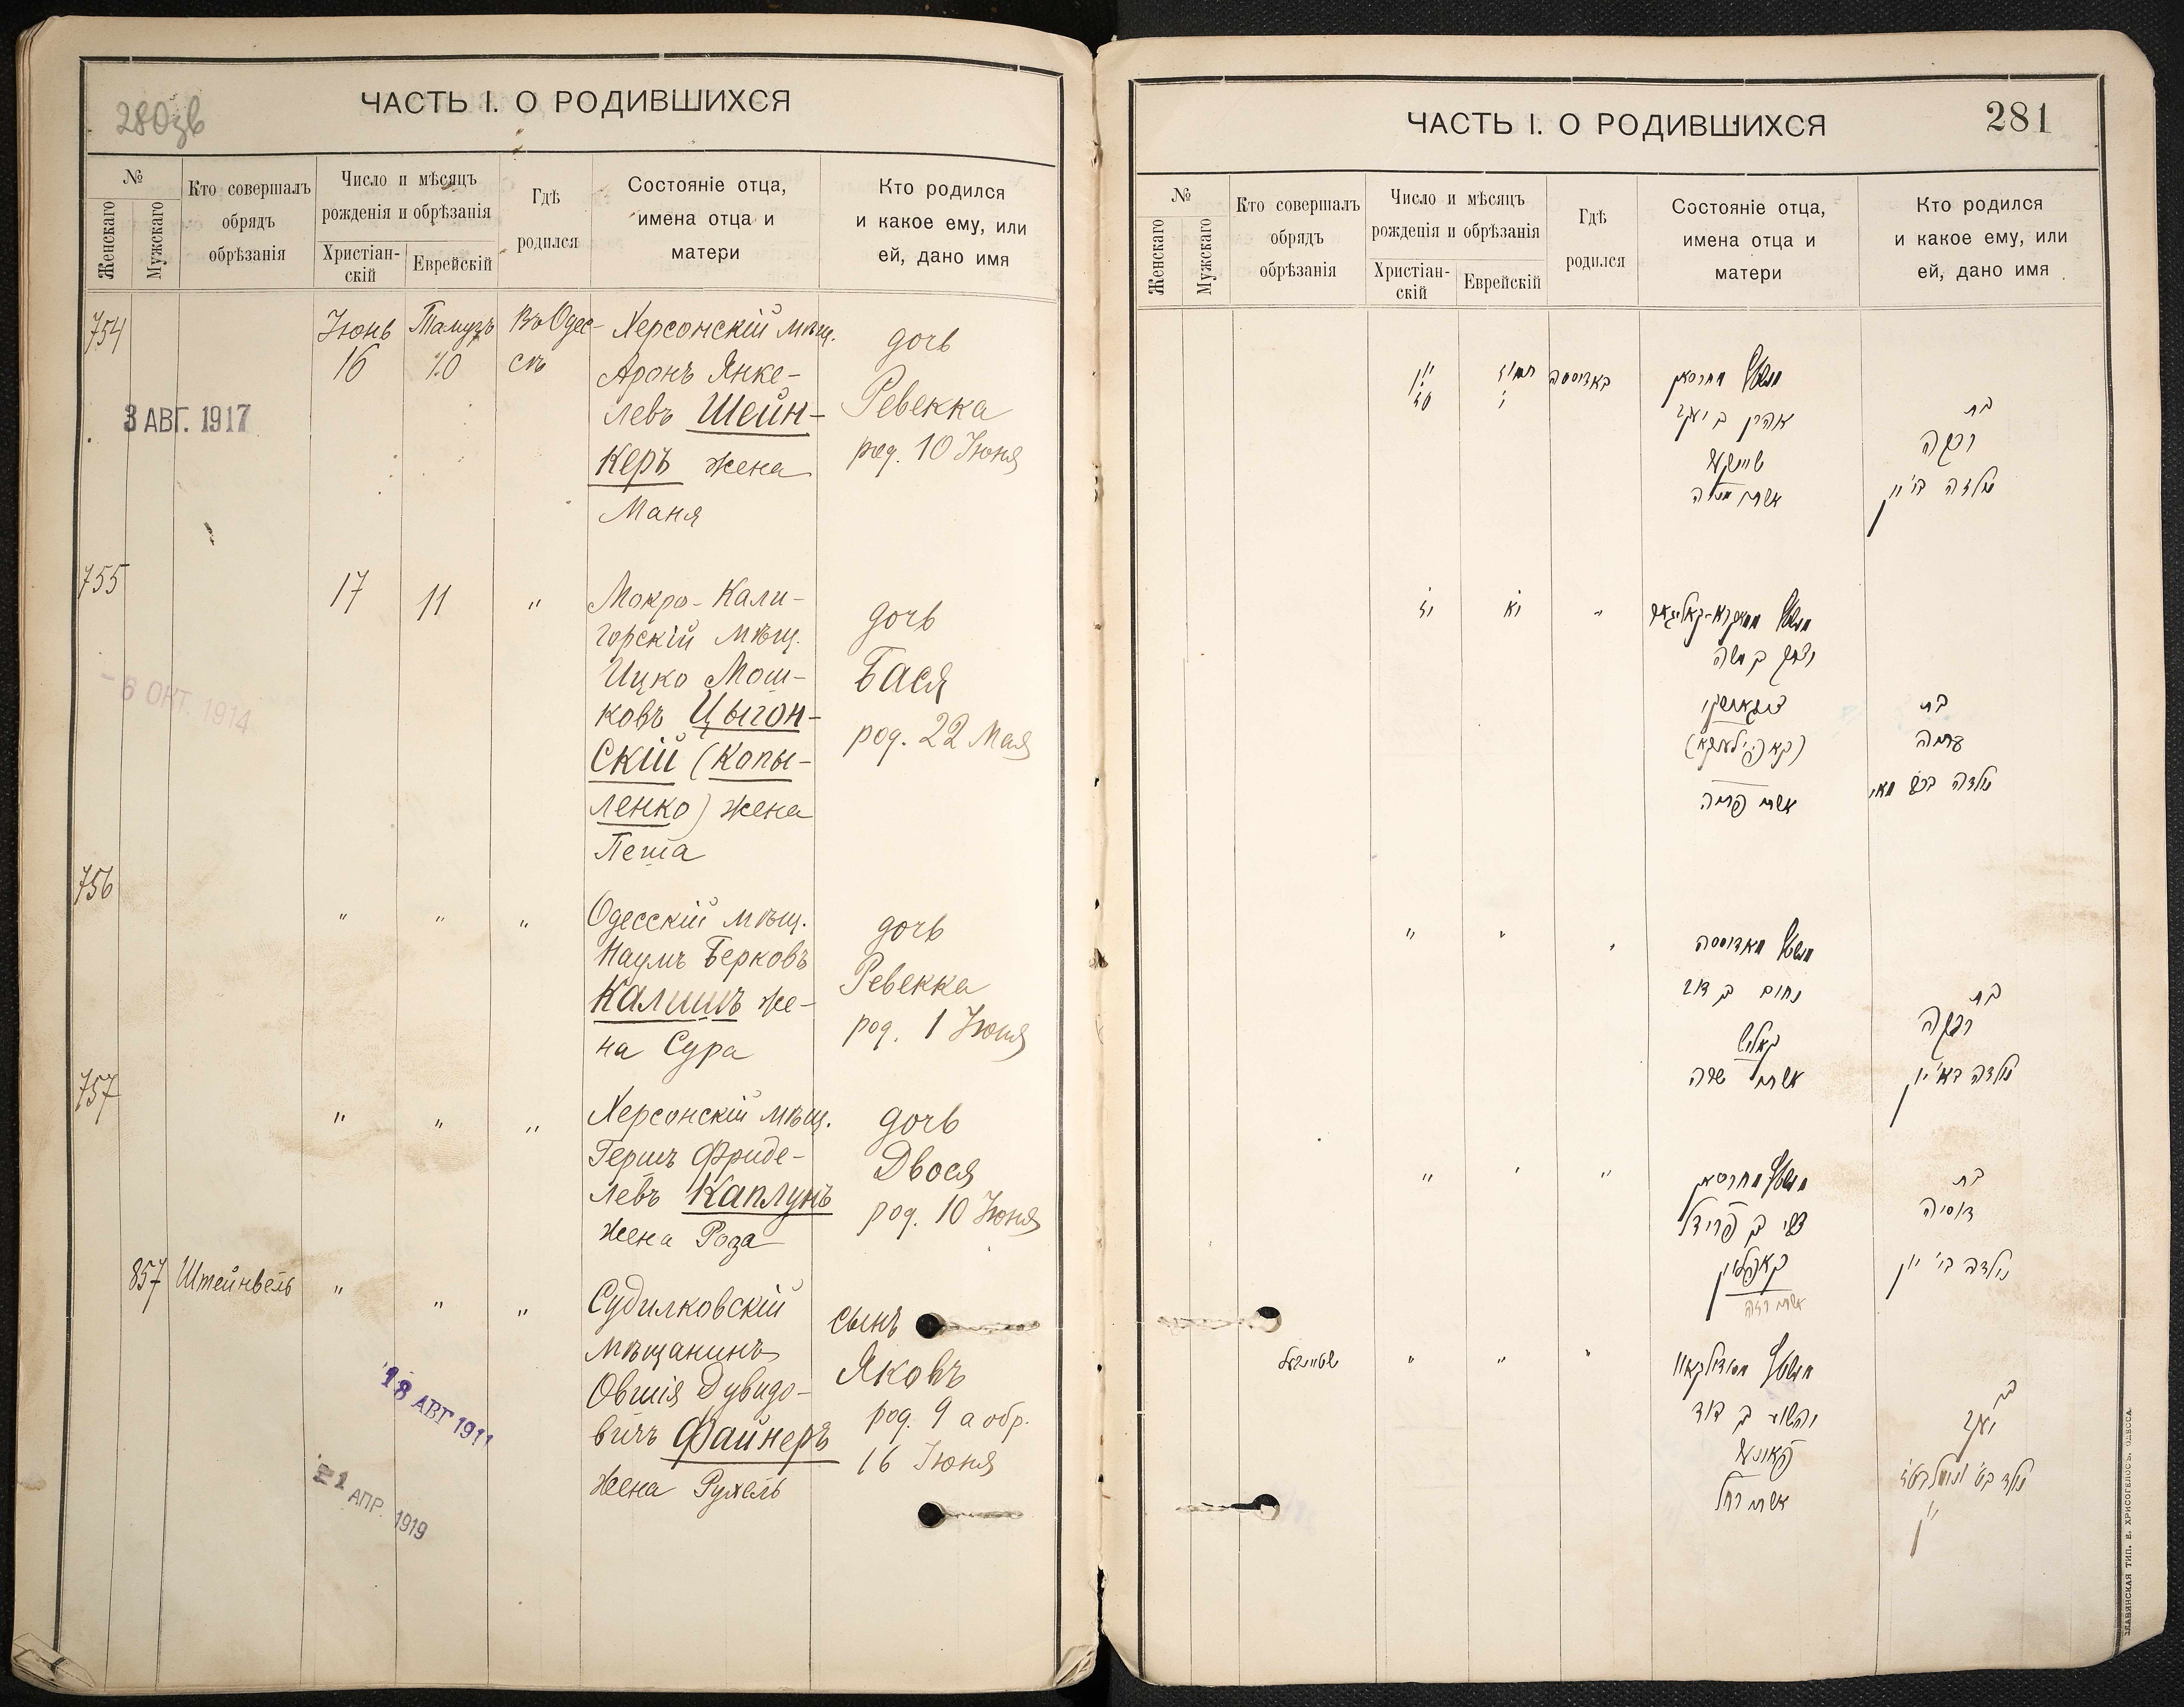 280зв
ЧАСТЬ I. О РОДИВШИХСЯ
№
Женскаго
Мужскаго
Кто совершалъ
обрядъ
обрѣзанія
Число и мѣсяцъ
рожденія и обрѣзанія
Христіан-
скій
Еврейскій
Гдѣ
родился
Состояніе отца,
имена отца и
матери
Кто родился
и какое ему, или
ей, дано имя
754
Іюнь
16
Тамузъ
10
Въ Одес-
сѣ
Херсонскій мѣщ.
Аронъ Янке-
левъ Шейн-
керъ жена
Маня
дочь
Ревекка
род. 10 Іюня
3 АВГ. 1917
755
17
11
"
Мокро-Кали-
горскій мѣщ.
Ицко Мош-
ковъ Цыгон-
скій (Копы-
ленко) жена
Пеша
дочь
Бася
род. 22 Мая
- 6 ОКТ. 1914
756
"
"
"
Одесскій мѣщ.
Наумъ Берковъ
Калишъ же-
на Сура
дочь
Ревекка
род. 1 Іюня
757
"
"
"
Херсонскій мѣщ.
Гершъ Фриде-
левъ Каплунъ
жена Роза
дочь
Двося
род. 10 Іюня
857
Штейнвель
"
"
"
Судилковскій
мѣщанинъ
Овшія Дувидо-
вичъ Файнеръ
жена Рухель
сынъ
Яковъ
род. 9 а обр.
16 Іюня
18 АВГ 1911
1 АПР. 1919
ЧАСТЬ I. О РОДИВШИХСЯ
281
№
Женскаго
Мужскаго
Кто совершалъ
обрядъ
обрѣзанія
Число и мѣсяцъ
рожденія и обрѣзанія
Христіан-
скій
Еврейскій
Гдѣ
родился
Состояніе отца,
имена отца и
матери
Кто родился
и какое ему, или
ей, дано имя
יון
טז
תמוז
י
באדיססה
אהרן ב יעקב
שיינקער
אשתו מניה
בת
רבקה
נולדה בי' יון
יז
יא
"
יצחק ב משה
אשתו פעשה
בת
נולדה בכ״ב מאי
"
"
"
מאדיססה
נחום ב דוב
קאליש
אשתו שרה
בת
רבקה
נולדה בא' יון
"
"
"
צבי ב פרידל
קאפלון
אשתו רוזה
בת
דוסיה
נולדה בי' יון
שטיינוועל
"
"
"
יהושע ב דוד
פאינער
אשתו רחל
בן
יעקב
נולד בט' ונימול בט״ז
יון
СЛАВЯНСКАЯ ТИП. Е. ХРИСОГЕЛОСЪ, ОДЕССА.